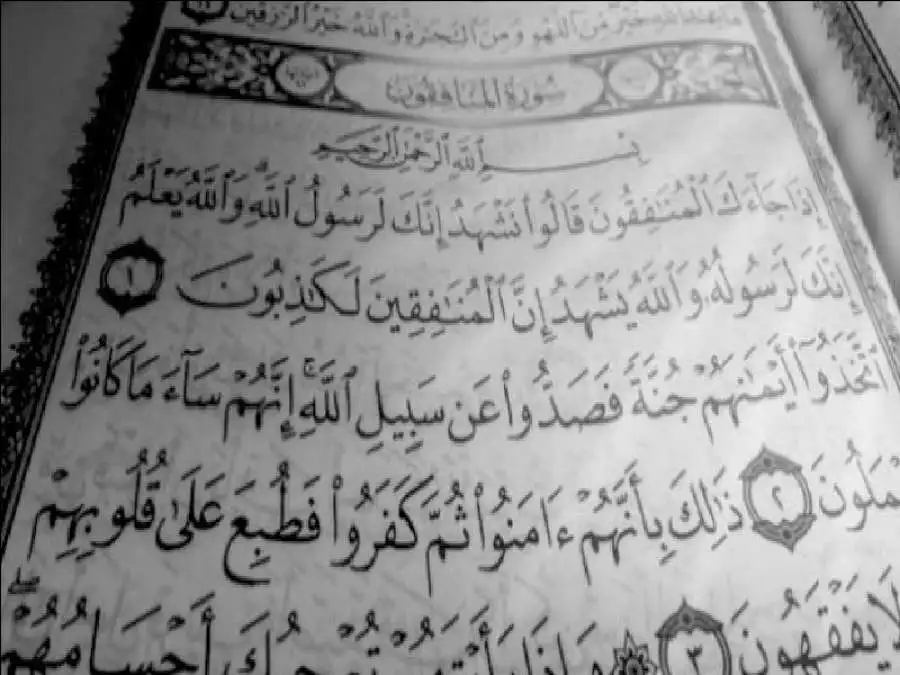 مَا عِندَ ٱللَّهِ خَيْرٌ مِّنَ ٱللَّهْوِ وَمِنَ ٱلتِّجَٰرَةِ وَٱللَّهُ خَيْرُ ٱلرَّٰزِقِينَ ١١
سُورَةُ المُنَافِقُون
بِسْمِ ٱللَّهِ ٱلرَّحْمَٰنِ ٱلرَّحِيمِ
إِذَا جَآءَكَ ٱلْمُنَٰفِقُونَ قَالُوا۟ نَشْهَدُ إِنَّكَ لَرَسُولُ ٱللَّهِ ۗ وَٱللَّهُ يَعْلَمُ
إِنَّكَ لَرَسُولُهُۥ وَٱللَّهُ يَشْهَدُ إِنَّ ٱلْمُنَٰفِقِينَ لَكَٰذِبُونَ ١
ٱتَّخَذُوٓا۟ أَيْمَٰنَهُمْ جُنَّةً فَصَدُّوا۟ عَن سَبِيلِ ٱللَّهِ ۚ إِنَّهُمْ سَآءَ مَا كَانُوا۟
مَلُونَ ٢ ذَٰلِكَ بِأَنَّهُمْ ءَامَنُوا۟ ثُمَّ كَفَرُوا۟ فَطُبِعَ عَلَىٰ قُلُوبِهِمْ
لَا يَفْقَهُونَ ٣ ۞ وَإِذَا رَأَيْتَهُمْ تُعْجِبُكَ أَجْسَامُهُمْ ۖ